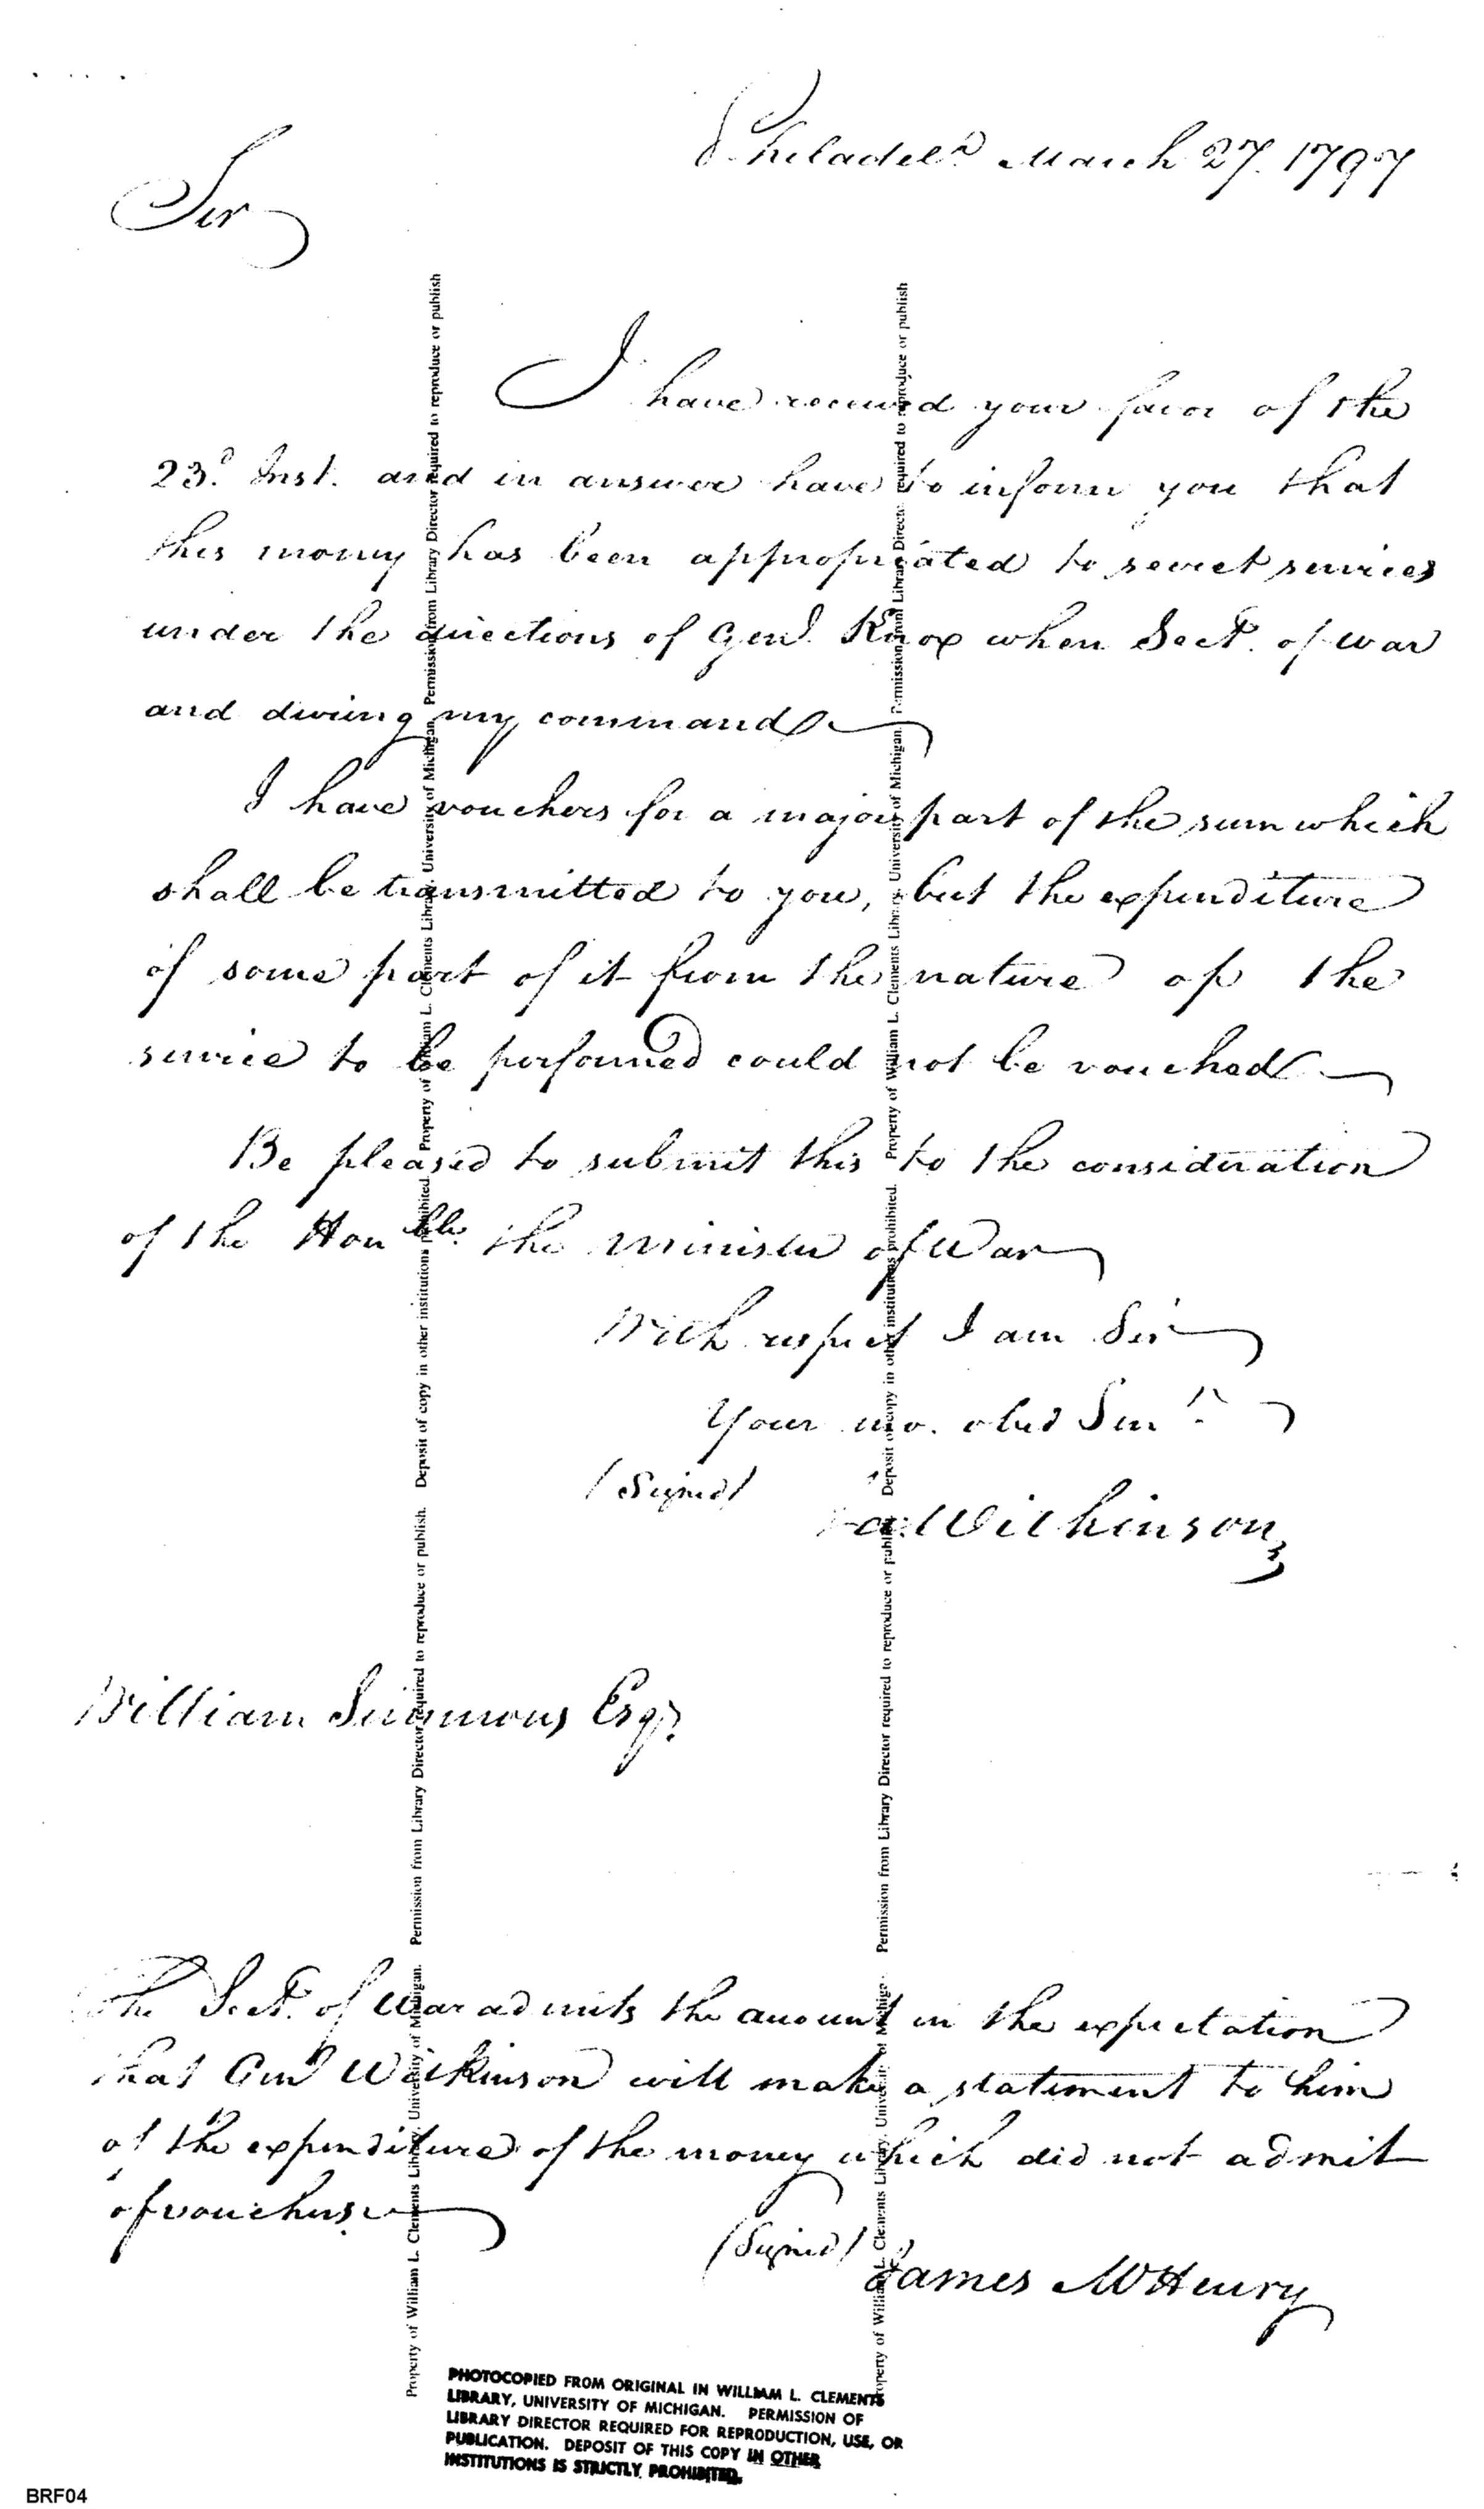 Philadelᵃ March 27. 1797
Sir
I have received your favor of the
23.ᵈ Inst. and in answer have to inform you that
this money has been appropriated to secret services
under the directions of Genˡ. Knox when Secʸ. of war
and during my command
I have vouchers for a major part of the sum which
shall be transmitted to you, but the expenditure
of some part of it from the nature of the
service to be performed could not be vouched
Be pleased to submit this to the consideration
of the Honᵇˡᵉ. the minister of War
With respect I am Sir
Your mo. obed Servᵗ.
(Signed)
Ja: Wilkinson
William Simmons Esqʳ.
The Secʸ. of War admits the amount in the expectation
that Genˡ Wilkinson will make a statement to him
of the expenditure of the money which did not admit
of vouchers.
(Signed)
James McHenry
Property of William L. Clements Library, University of Michigan. Permission from Library Director required to reproduce or publish. Deposit of copy in other institutions prohibited. Property of William L. Clements Library, University of Michigan. Permission from Library Director required to reproduce or publish
Property of William L. Clements Library, University of Michigan. Permission from Library Director required to reproduce or publish. Deposit of copy in other institutions prohibited. Property of William L. Clements Library, University of Michigan. Permission from Library Director required to reproduce or publish
PHOTOCOPIED FROM ORIGINAL IN WILLIAM L. CLEMENTS
LIBRARY, UNIVERSITY OF MICHIGAN. PERMISSION OF
LIBRARY DIRECTOR REQUIRED FOR REPRODUCTION, USE, OR
PUBLICATION. DEPOSIT OF THIS COPY IN OTHER
INSTITUTIONS IS STRICTLY PROHIBITED.
BRF04